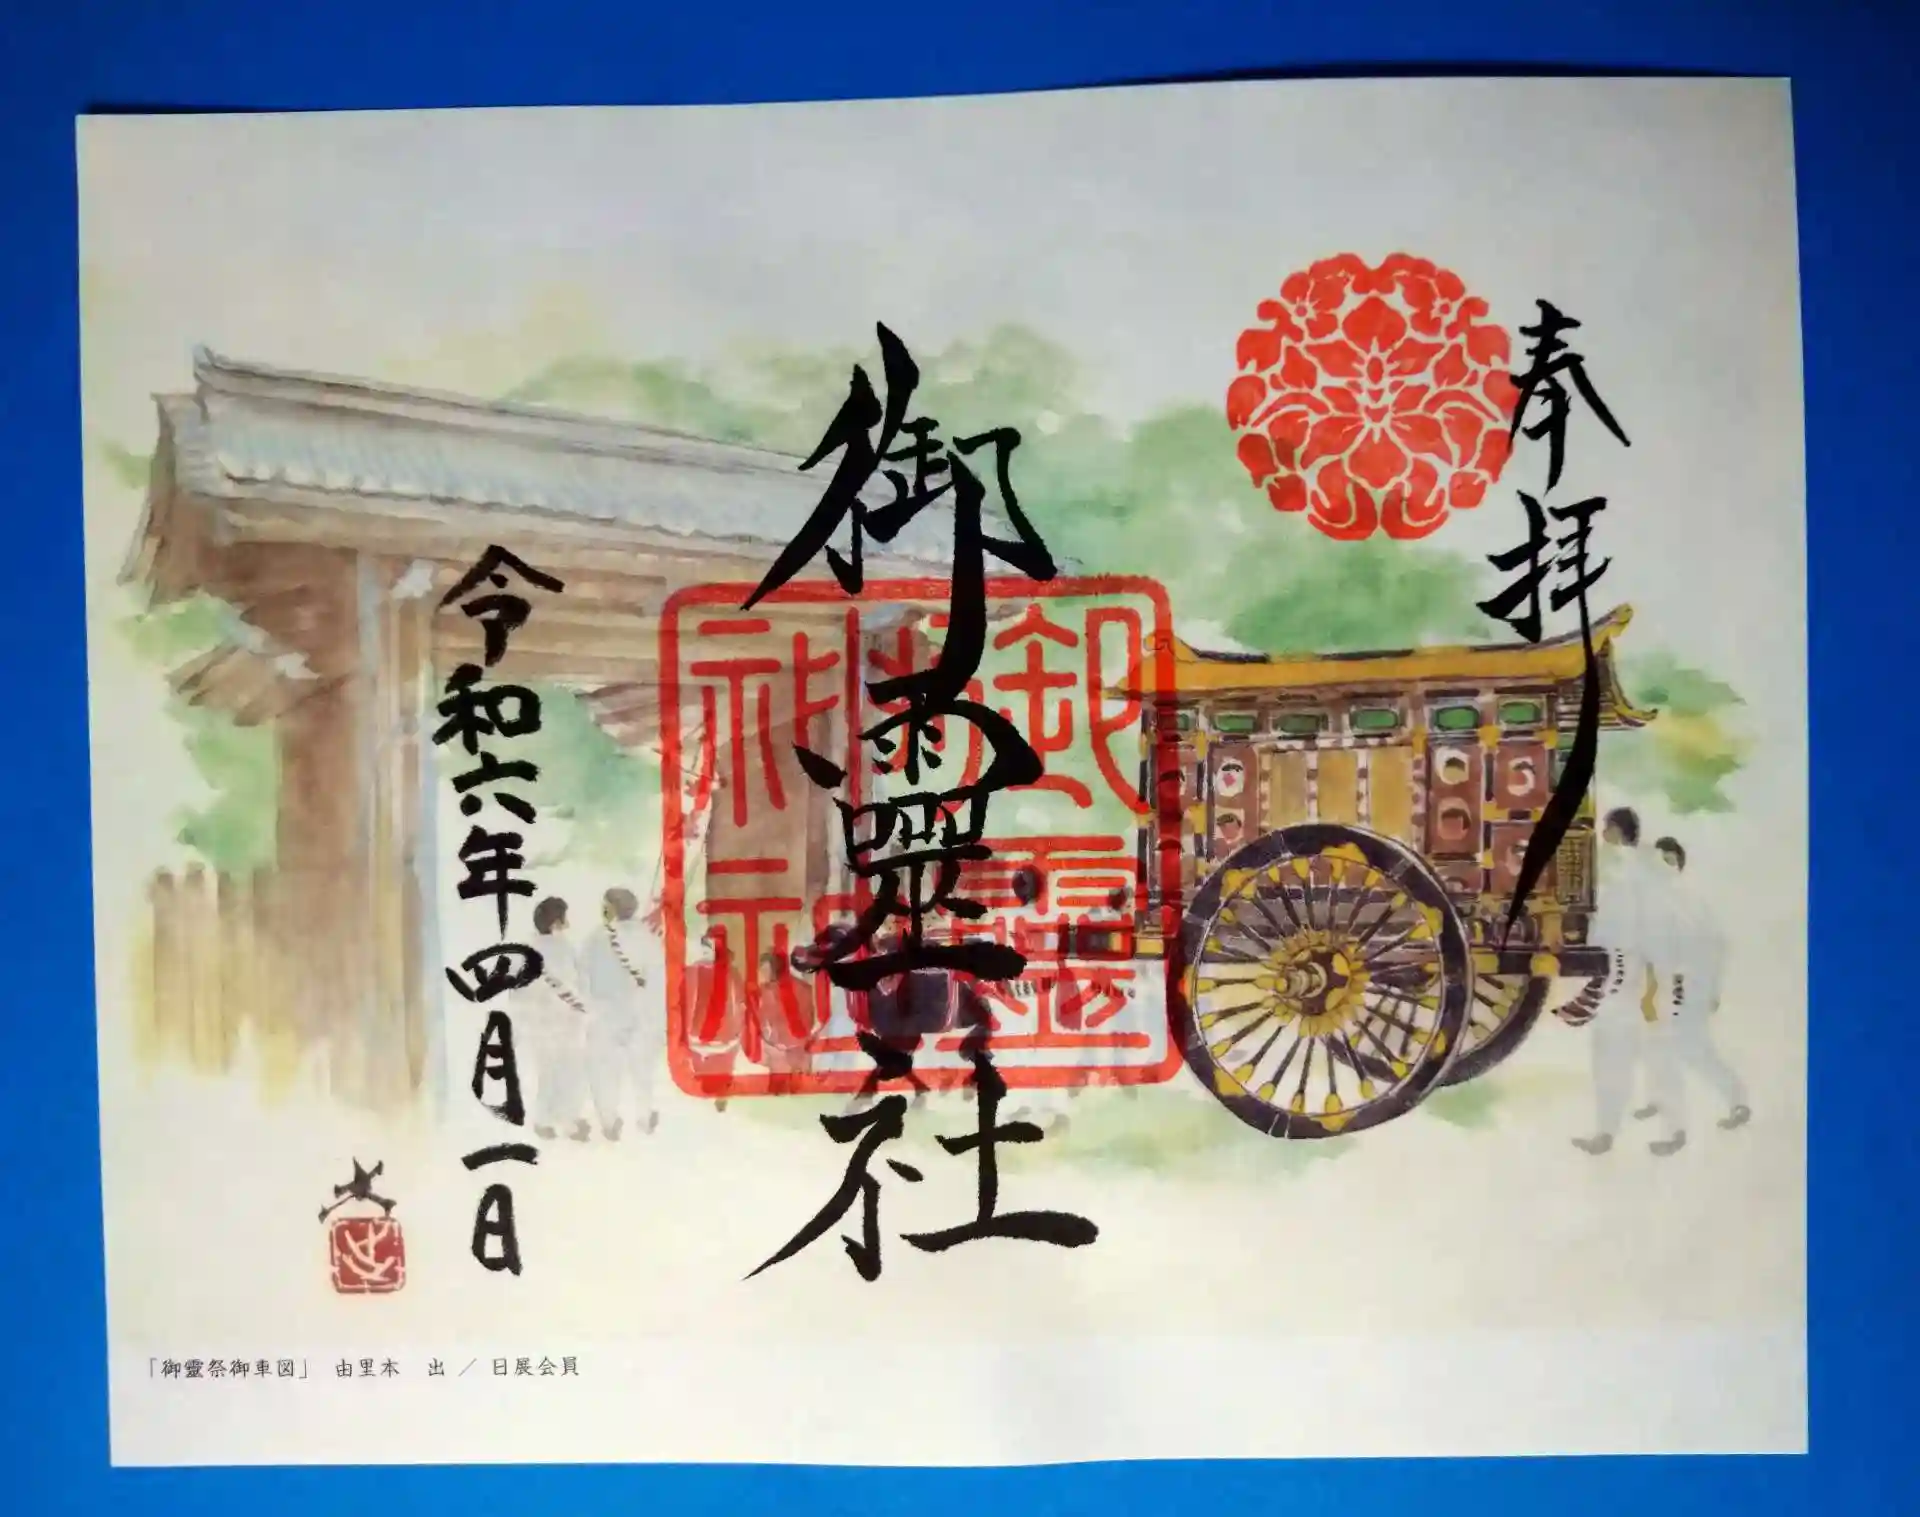 奉拝
御靈社
令和六年四月一日
「御靈祭御車図」 由里本 出 ／ 日展会員